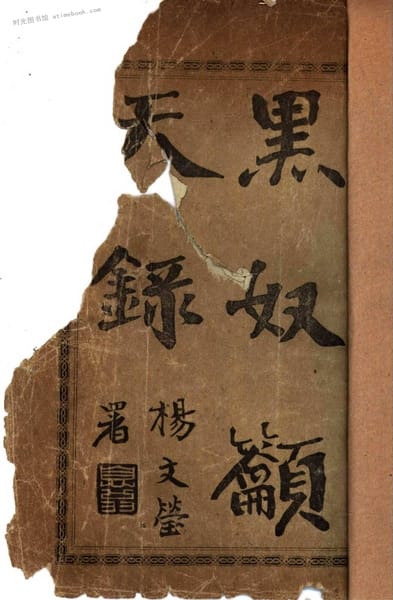 时光图书馆 atimebook.com
黑奴籲
天錄
楊文瑩
署